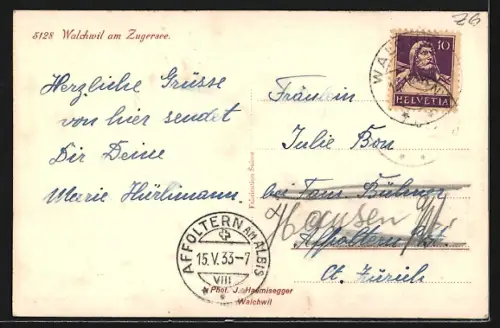 5128 Walchwil am Zugersee.
Z6
10
HELVETIA
WAL
Herzliche Grüsse
von hier sendet
Dir Deine
Marie Hürlimann.
Fräulein
Julie Bon
bei Fam. Bühner
Hausen
Affoltern
Ct. Zürich
AFFOLTERN AM ALBIS
15.V.33-7
VIII
Phot. J. Hürmisegger
Walchwil